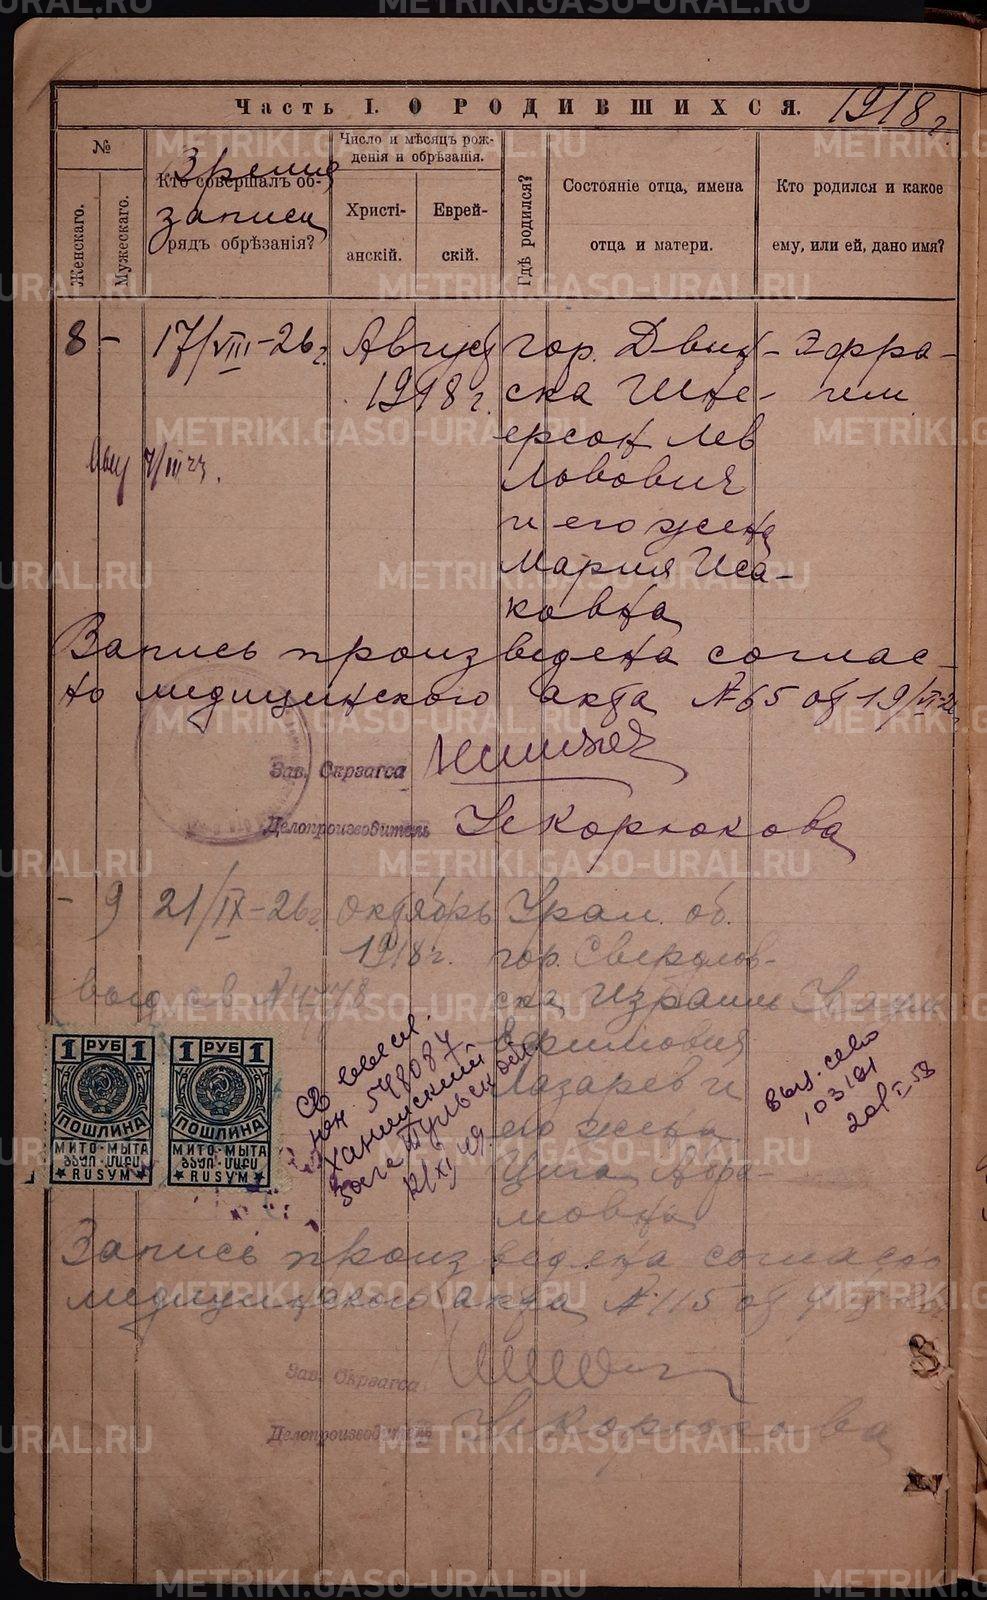 Часть I. О РОДИВШИХСЯ. 1918 г.
№
Женскаго.
Мужескаго.
Кто совершалъ обрядъ обрѣзанія?
Время записи
Число и мѣсяцъ рожденія и обрѣзанія.
Христіанскій.
Еврейскій.
Гдѣ родился?
Состояніе отца, имена отца и матери.
Кто родился и какое ему, или ей, дано имя?
8 - 17/VIII-26 г.
Август
1918 г.
гор. Двинска Шнеерсон Лев
Лвович
и его жена
Мария Исаковна
Эфраим
Запись произведена соглас-
но медицинского акта № 65 от 19/VI-26 г.
Зав. Окрзагса
Делопроизводитель Ускорюкова
- 9 21/IX-26 г.
Октябрь
1918 г.
Урал. об.
гор. Свердлов-
ска Израиль
Ефимович
Лазарев и
его жена
Абра-
мовна
выд с-в № 4778
1 РУБ 1
ПОШЛИНА
МИТО-МЫТА
RUSYM
1 РУБ 1
ПОШЛИНА
МИТО-МЫТА
RUSYM
598087
выд. св-во
103101
20/I-58
Запись произведена согласно
медицинского акта № 115 от
Зав. Окрзагса
Делопроизводитель Ускорюкова
METRIKI.GASO-URAL.RU